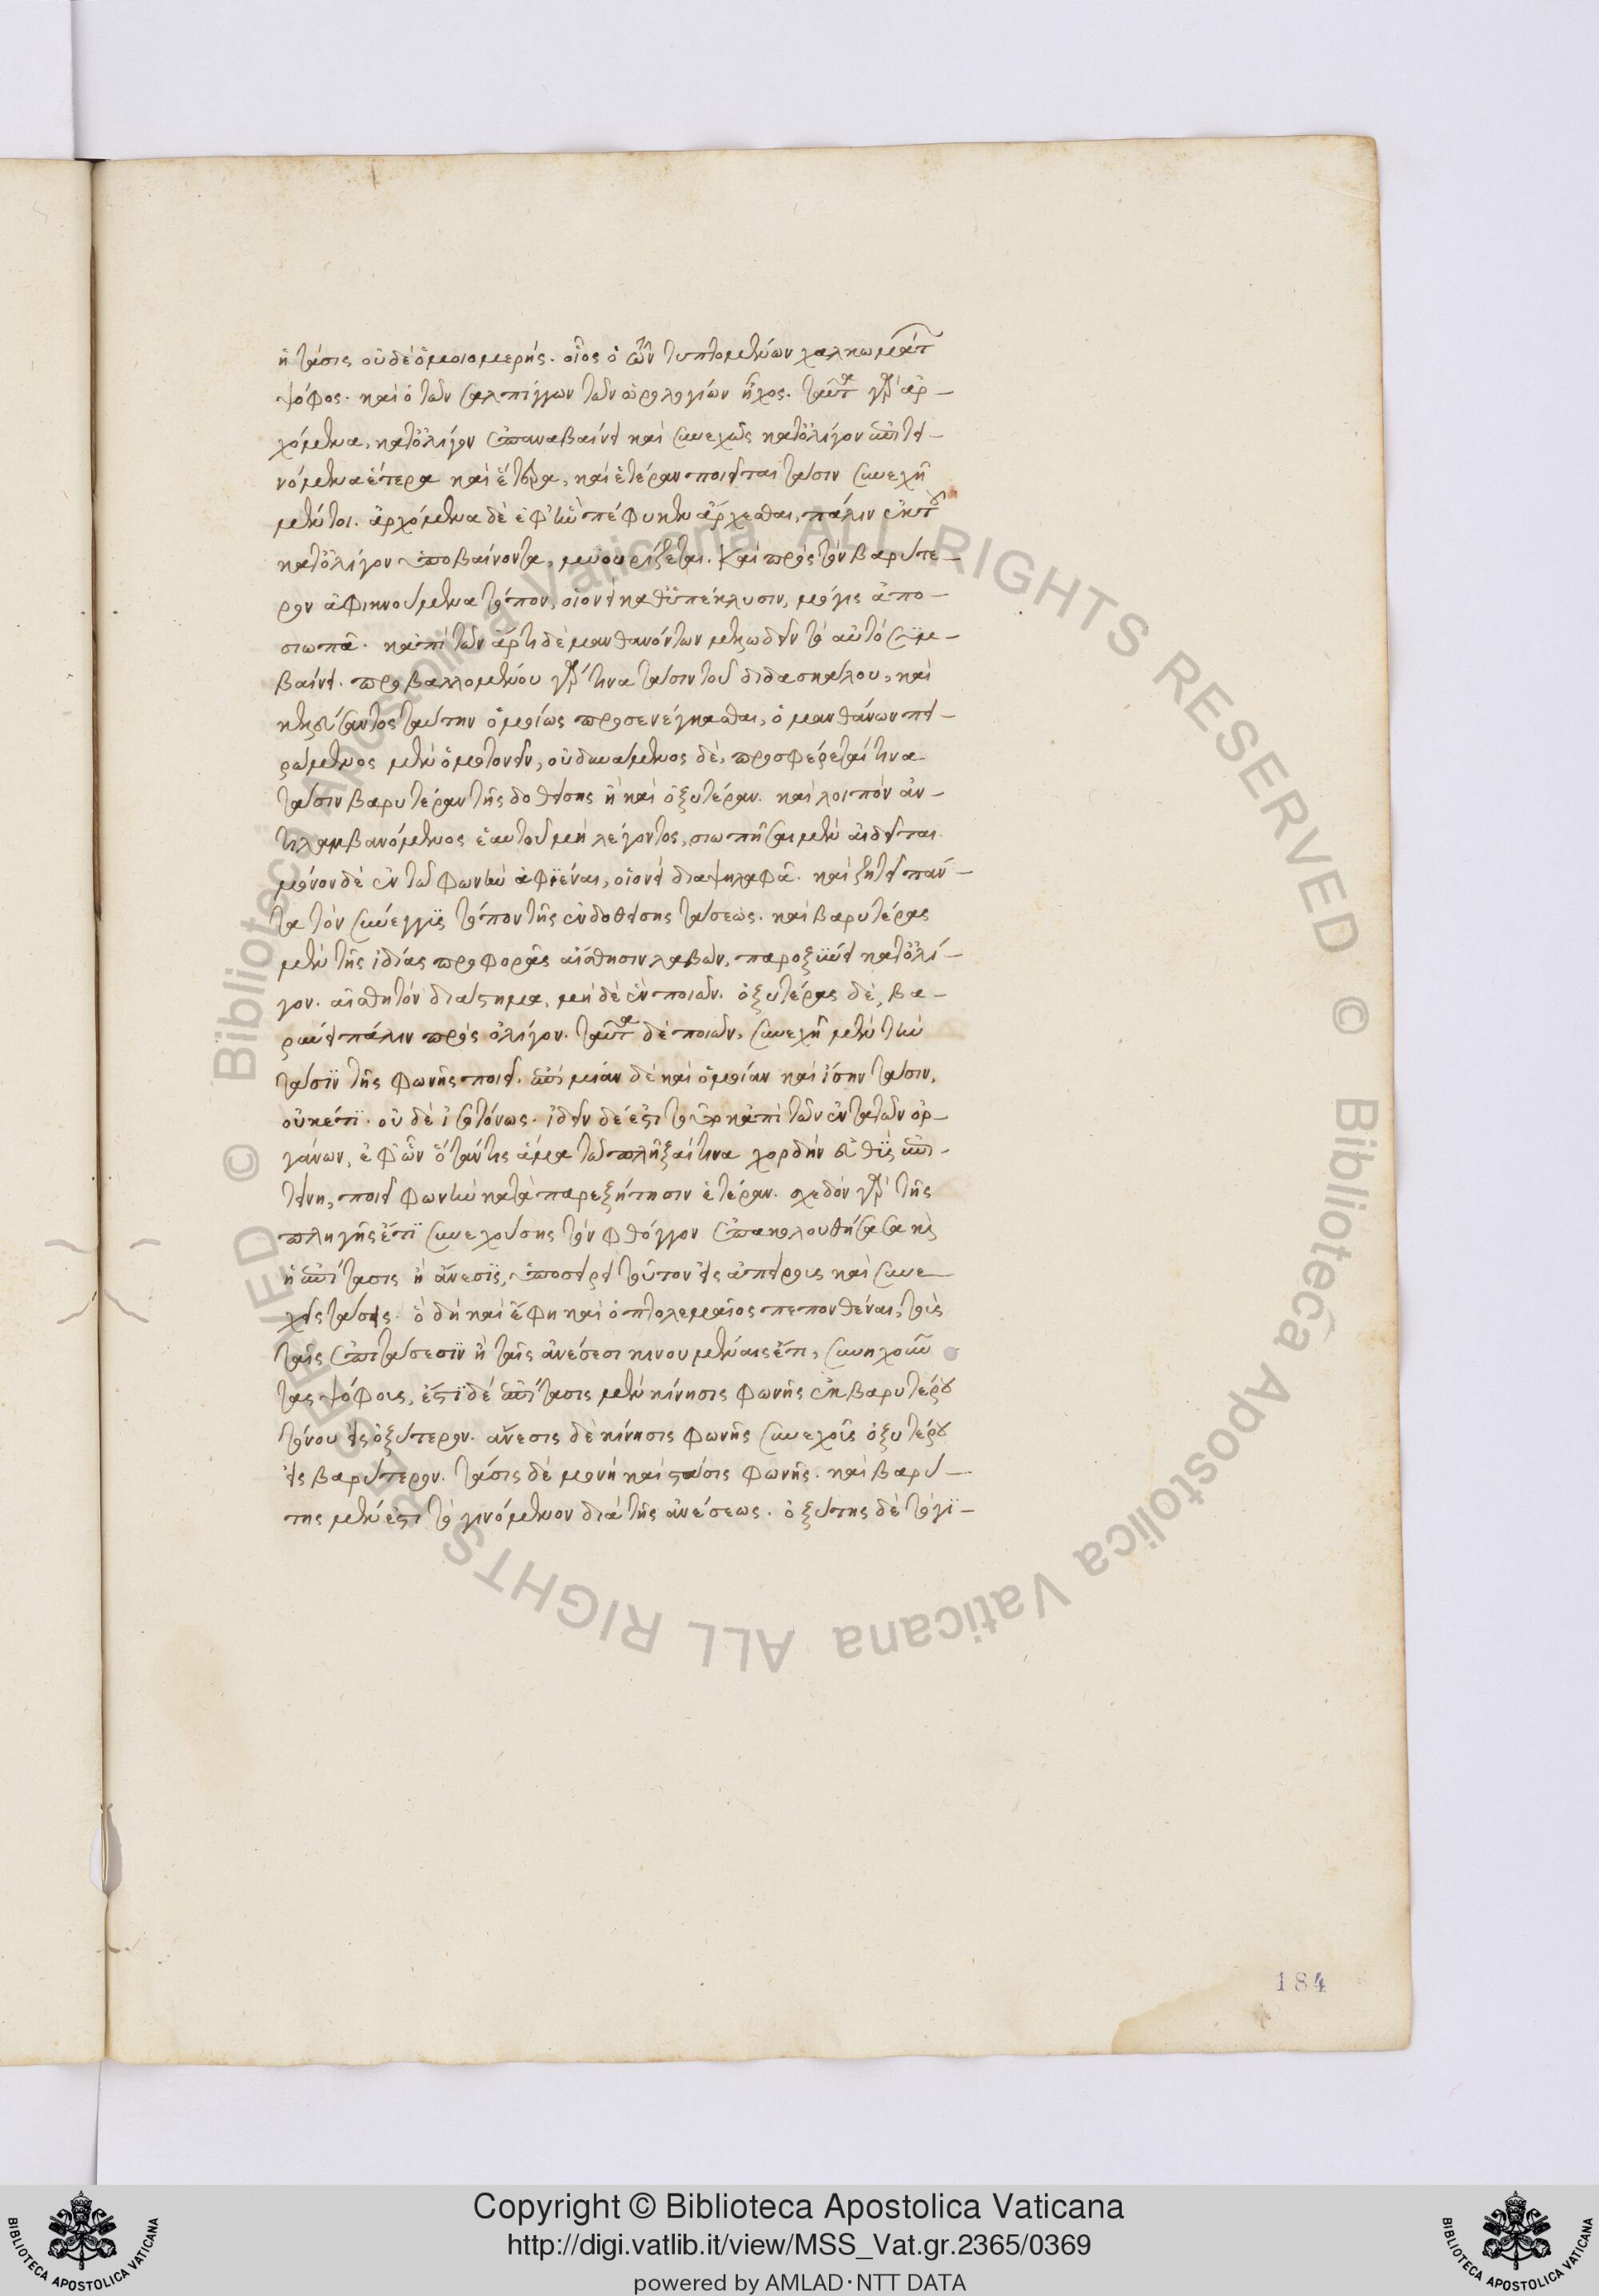 ἡ τάσις οὐδὲ ὁμοιομερής. οἷος ὁ τῶν τυπτομένων χαλκωμάτ
ψόφος. καὶ ὁ τῶν σαλπίγγων τῶν ὡρολογίων ἦχος. ταῦτα γὰρ ἀρ–
χόμενα, κατολίγον ἐπαναβαίνει καὶ συνεχῶς κατολίγον ἐπιτει–
νόμενα ἕτερα καὶ ἕτερα, καὶ ἑτέραν ποιεῖται τάσιν συνεχῆ
μέντοι. ἀρχόμενα δὲ ἐφ' ἣν πέφυκεν ἄρχεσθαι, πάλιν ἐκ τοῦ
κατολίγον ὑποβαίνοντα, μυουρίζεται. καὶ πρὸς τὸν βαρύτε–
ρον ἀφικνούμενα τόπον, οἱονεὶ καθ' ὑπέκλυσιν, μόγις ἀπο–
σιωπᾶ. κἀπὶ τῶν ἄρτι δὲ μανθανόντων μελωδεῖν τὸ αὐτὸ συμ–
βαίνει. προβαλλομένου γάρ τινα τάσιν τοῦ διδασκάλου, καὶ
κελεύσαντος ταύτην ὁμοίως προσενέγκασθαι, ὁ μανθάνων πει–
ρώμενος μὲν ὁμοτονεῖν, οὐ δυνάμενος δὲ, προσφέρεταί τινα
τάσιν βαρυτέραν τῆς δοθείσης ἢ καὶ ὀξυτέραν. καὶ λοιπὸν ἀν–
τιλαμβανόμενος ἑαυτοῦ μὴ λέγοντος, σιωπῆσαι μὲν αἰδεῖται
μόνον δὲ ἐν τῶ φωνὴν ἀφϊέναι, οἱονεὶ διαψηλαφᾶ. καὶ ζητεῖ πάν–
τα τὸν σύνεγγυς τόπον τῆς ἐνδοθείσης τάσεως. καὶ βαρυτέρας
μὲν τῆς ἰδίας προφορᾶς αἴσθησιν λαβὼν, παροξύνει κατολί–
γον. αἰσθητὸν διάστημα, μὴ δὲ ἓν ποιῶν. ὀξυτέρας δὲ, βα–
ρύνει πάλιν πρὸς ὀλίγον. ταῦτα δὲ ποιῶν, συνεχῆ μὲν τὴν
τάσϊν τῆς φωνῆς ποιεῖ. ἐπὶ μιάν δὲ καὶ ὁμοίαν καὶ ἴσην τάσιν,
οὐκέτϊ. οὐ δὲ ἰσοτόνως. ἰδεῖν δέ ἐστι τοῦτο κἀπὶ τῶν ἐντατῶν ὀρ–
γάνων, ἐφ' ὧν ὅταν τις ἅμα τῶ πλῆξαί τινα χορδὴν εὐθὺς ἐπι–
τείνη, ποιεῖ φωνὴν κατὰ παρεξήτησιν ἑτέραν. σχεδὸν γὰρ τῆς
πληγῆς ἔτϊ συνεχούσης τὸν φθόγγον ἐπακολουθήσασά τις
ἢ ἐπίτασις ἢ ἄνεσϊς, ὑποσύρει τοῦτον εἰς ἀπείρους καὶ συνε–
χεῖς τάσεις. ὃ δὴ καὶ ἔφη καὶ ὁ πτολεμαῖος πεπονθέναι, τοὺς
ταῖς ἐπιτάσεσϊν ἢ ταῖς ἀνέσεσι κινουμέναις ἔτι, συνηχοῦν
τας ψόφους. ἔστϊ δὲ ἐπίτασις μὲν κίνησις φωνῆς ἐκ βαρυτέρου
τόνου εἰς ὀξύτερον. ἄνεσις δὲ κίνησις φωνῆς συνεχοῦς ὀξυτέρου
εἰς βαρύτερον. τάσις δὲ μονὴ καὶ στάσις φωνῆς. καὶ βαρύ–
της μέν ἐστι τὸ γινόμενον διὰ τῆς ἀνέσεως. ὀξύτης δὲ τὸ γϊ–
184
Copyright © Biblioteca Apostolica Vaticana
http://digi.vatlib.it/view/MSS_Vat.gr.2365/0369
powered by AMLAD·NTT DATA
BIBLIOTECA APOSTOLICA VATICANA
BIBLIOTECA APOSTOLICA VATICANA
© Biblioteca Apostolica Vaticana ALL RIGHTS RESERVED © Biblioteca Apostolica Vaticana ALL RIGHTS RESERVED